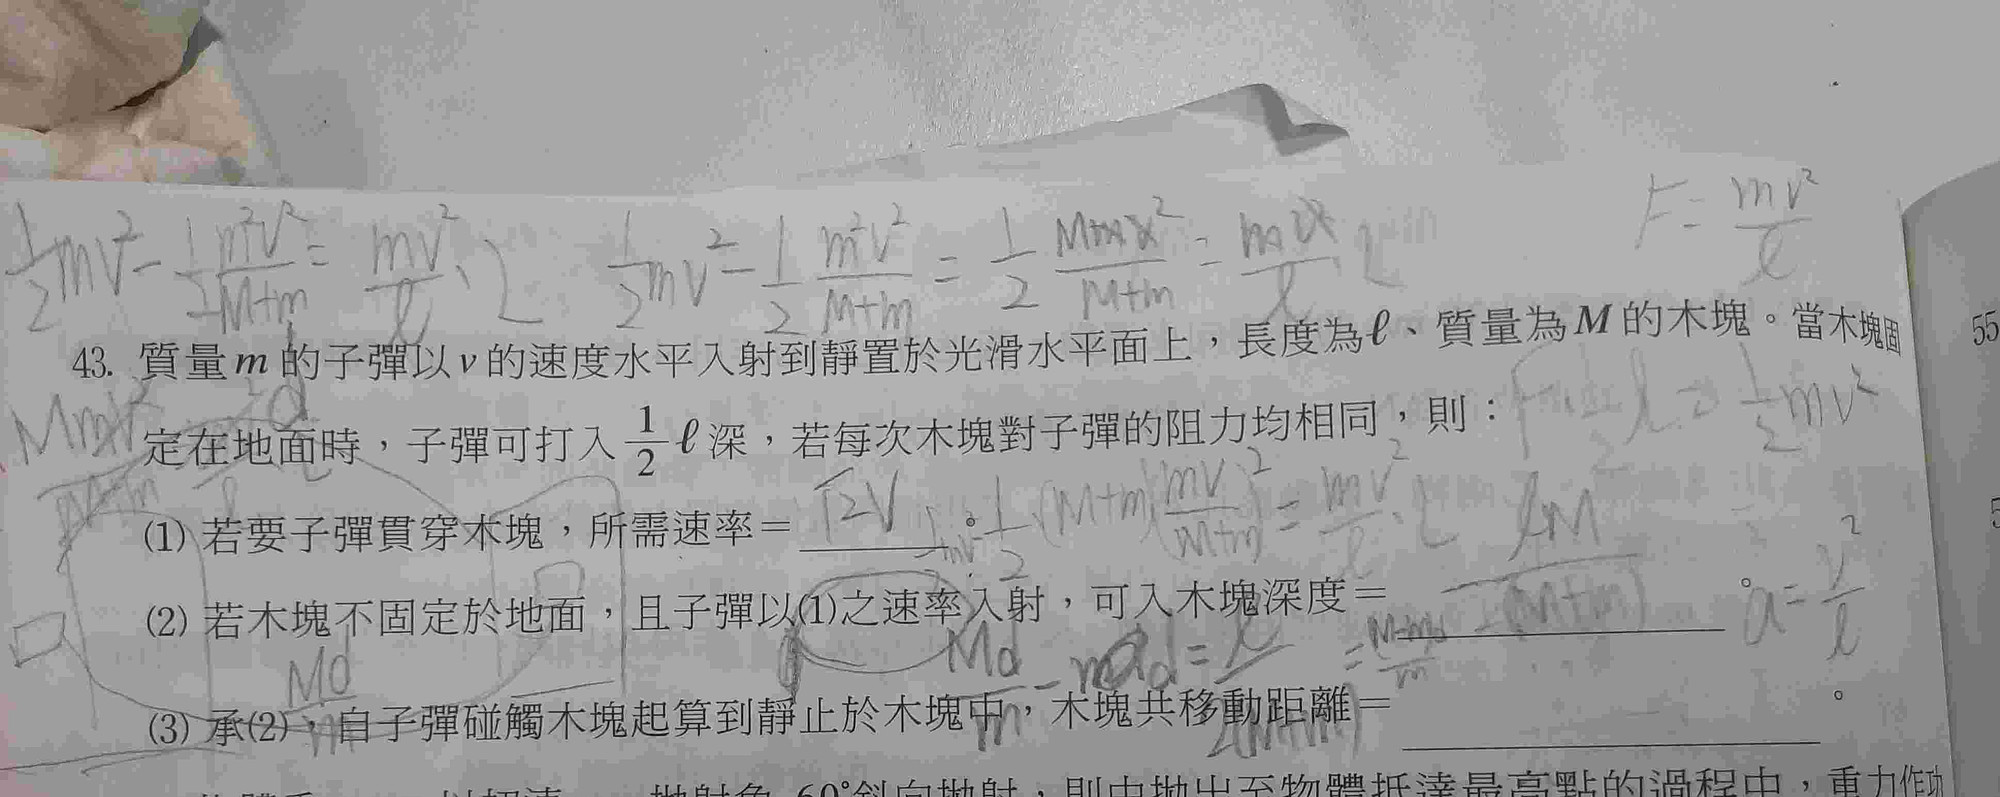 ½mv² - ½ m²v²/M+m = mv²/ℓ · L ½mv² - ½ m²v²/M+m = ½ Mmv²/M+m = mv²/ℓ · L F = mv²/ℓ
43. 質量 m 的子彈以 v 的速度水平入射到靜置於光滑水平面上，長度為 ℓ、質量為 M 的木塊。當木塊固
定在地面時，子彈可打入 1/2 ℓ 深，若每次木塊對子彈的阻力均相同，則： F · ½ ℓ = ½mv²
(1) 若要子彈貫穿木塊，所需速率＝ √2V 。 ½ (M+m)(mv/(M+m))² = mv²/ℓ · L
(2) 若木塊不固定於地面，且子彈以(1)之速率入射，可入木塊深度＝ ℓM/(M+m) 。 a = v²/ℓ
Md/m
(3) 承(2)，自子彈碰觸木塊起算到靜止於木塊中，木塊共移動距離＝ 。
60°斜向拋射，則由拋出至物體抵達最高點的過程中，重力作功
55